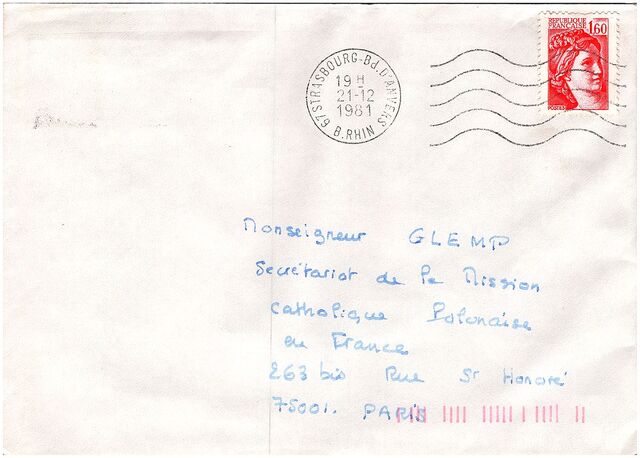 REPUBLIQUE
FRANÇAISE
1,60
67 STRASBOURG-Bd. D'ANVERS
19 H
21-12
1981
B. RHIN
Monseigneur GLEMP
Secrétariat de la Mission
Catholique Polonaise
en France
263 bis Rue St Honoré
75001. PARIS